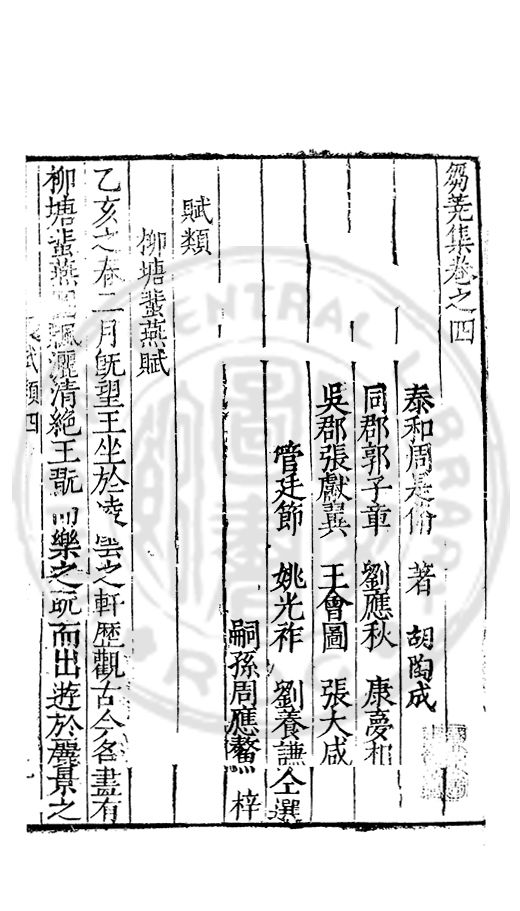 芻蕘集卷之四
泰和周是脩 著 胡陶成
同郡郭子章 劉應秋 康夢相
吳郡張獻翼 王會圖 張大咸
管廷節 姚光祚 劉養謙 仝選
嗣孫周應鰲 梓
賦類
柳塘蜚燕賦
乙亥之春二月既望王坐於凌雲之軒歷觀古今名畫有
柳塘蜚燕圖飄灑清絕王翫而樂之既而出遊於麗景之
賦類四
CENTRAL LIBRARY